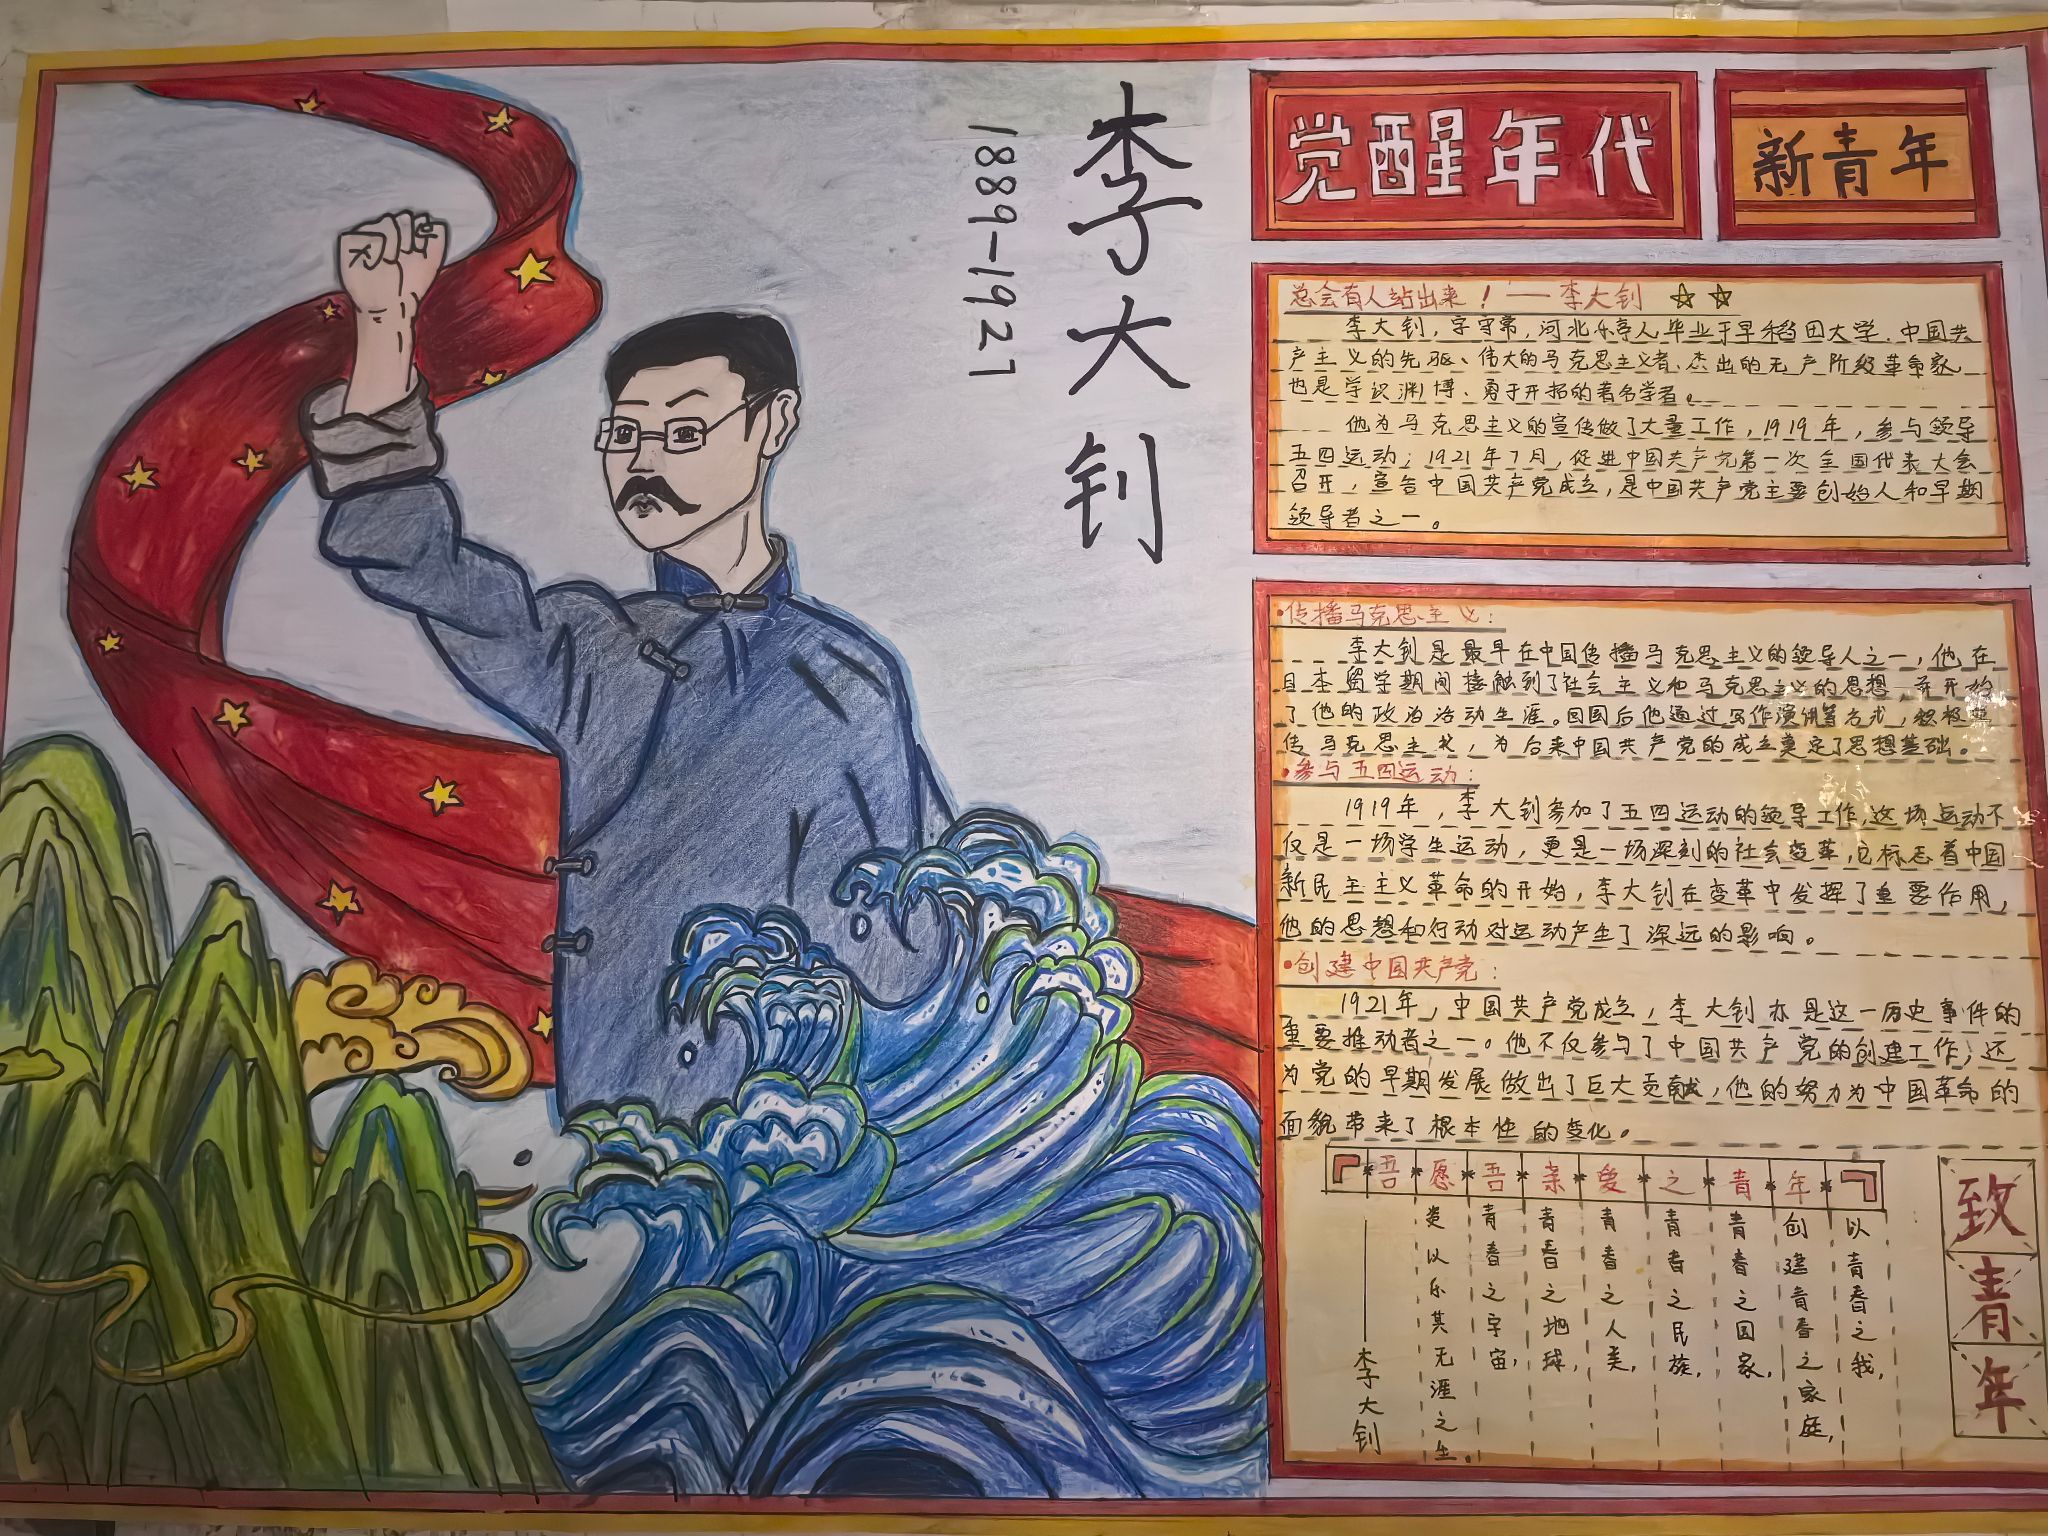 李大钊
1889-1927
觉醒年代
新青年
总会有人站出来！——李大钊 ☆☆
李大钊，字守常，河北乐亭人毕业于早稻田大学.中国共
产主义的先驱、伟大的马克思主义者、杰出的无产阶级革命家
也是学识渊博、勇于开拓的著名学者。
他为马克思主义的宣传做了大量工作，1919年，参与领导
五四运动；1921年7月，促进中国共产党第一次全国代表大会
召开，宣告中国共产党成立，是中国共产党主要创始人和早期
领导者之一。
•传播马克思主义：
李大钊是最早在中国传播马克思主义的领导人之一，他在
日本留学期间接触到了社会主义和马克思主义的思想，并开始
了他的政治活动生涯。回国后他通过写作演讲等方式，积极
传马克思主义，为后来中国共产党的成立奠定了思想基础。
•参与五四运动：
1919年，李大钊参加了五四运动的领导工作，这场运动不
仅是一场学生运动，更是一场深刻的社会变革，它标志着中国
新民主主义革命的开始，李大钊在变革中发挥了重要作用，
他的思想和行动对运动产生了深远的影响。
•创建中国共产党：
1921年，中国共产党成立，李大钊亦是这一历史事件的
重要推动者之一。他不仅参与了中国共产党的创建工作，还
为党的早期发展做出了巨大贡献，他的努力为中国革命的
面貌带来了根本性的变化。
吾愿吾亲爱之青年
以青春之我，
创建青春之家庭，
青春之国家，
青春之民族，
青春之人类，
青春之地球，
青春之宇宙，
资以乐其无涯之生。
——李大钊
致青年